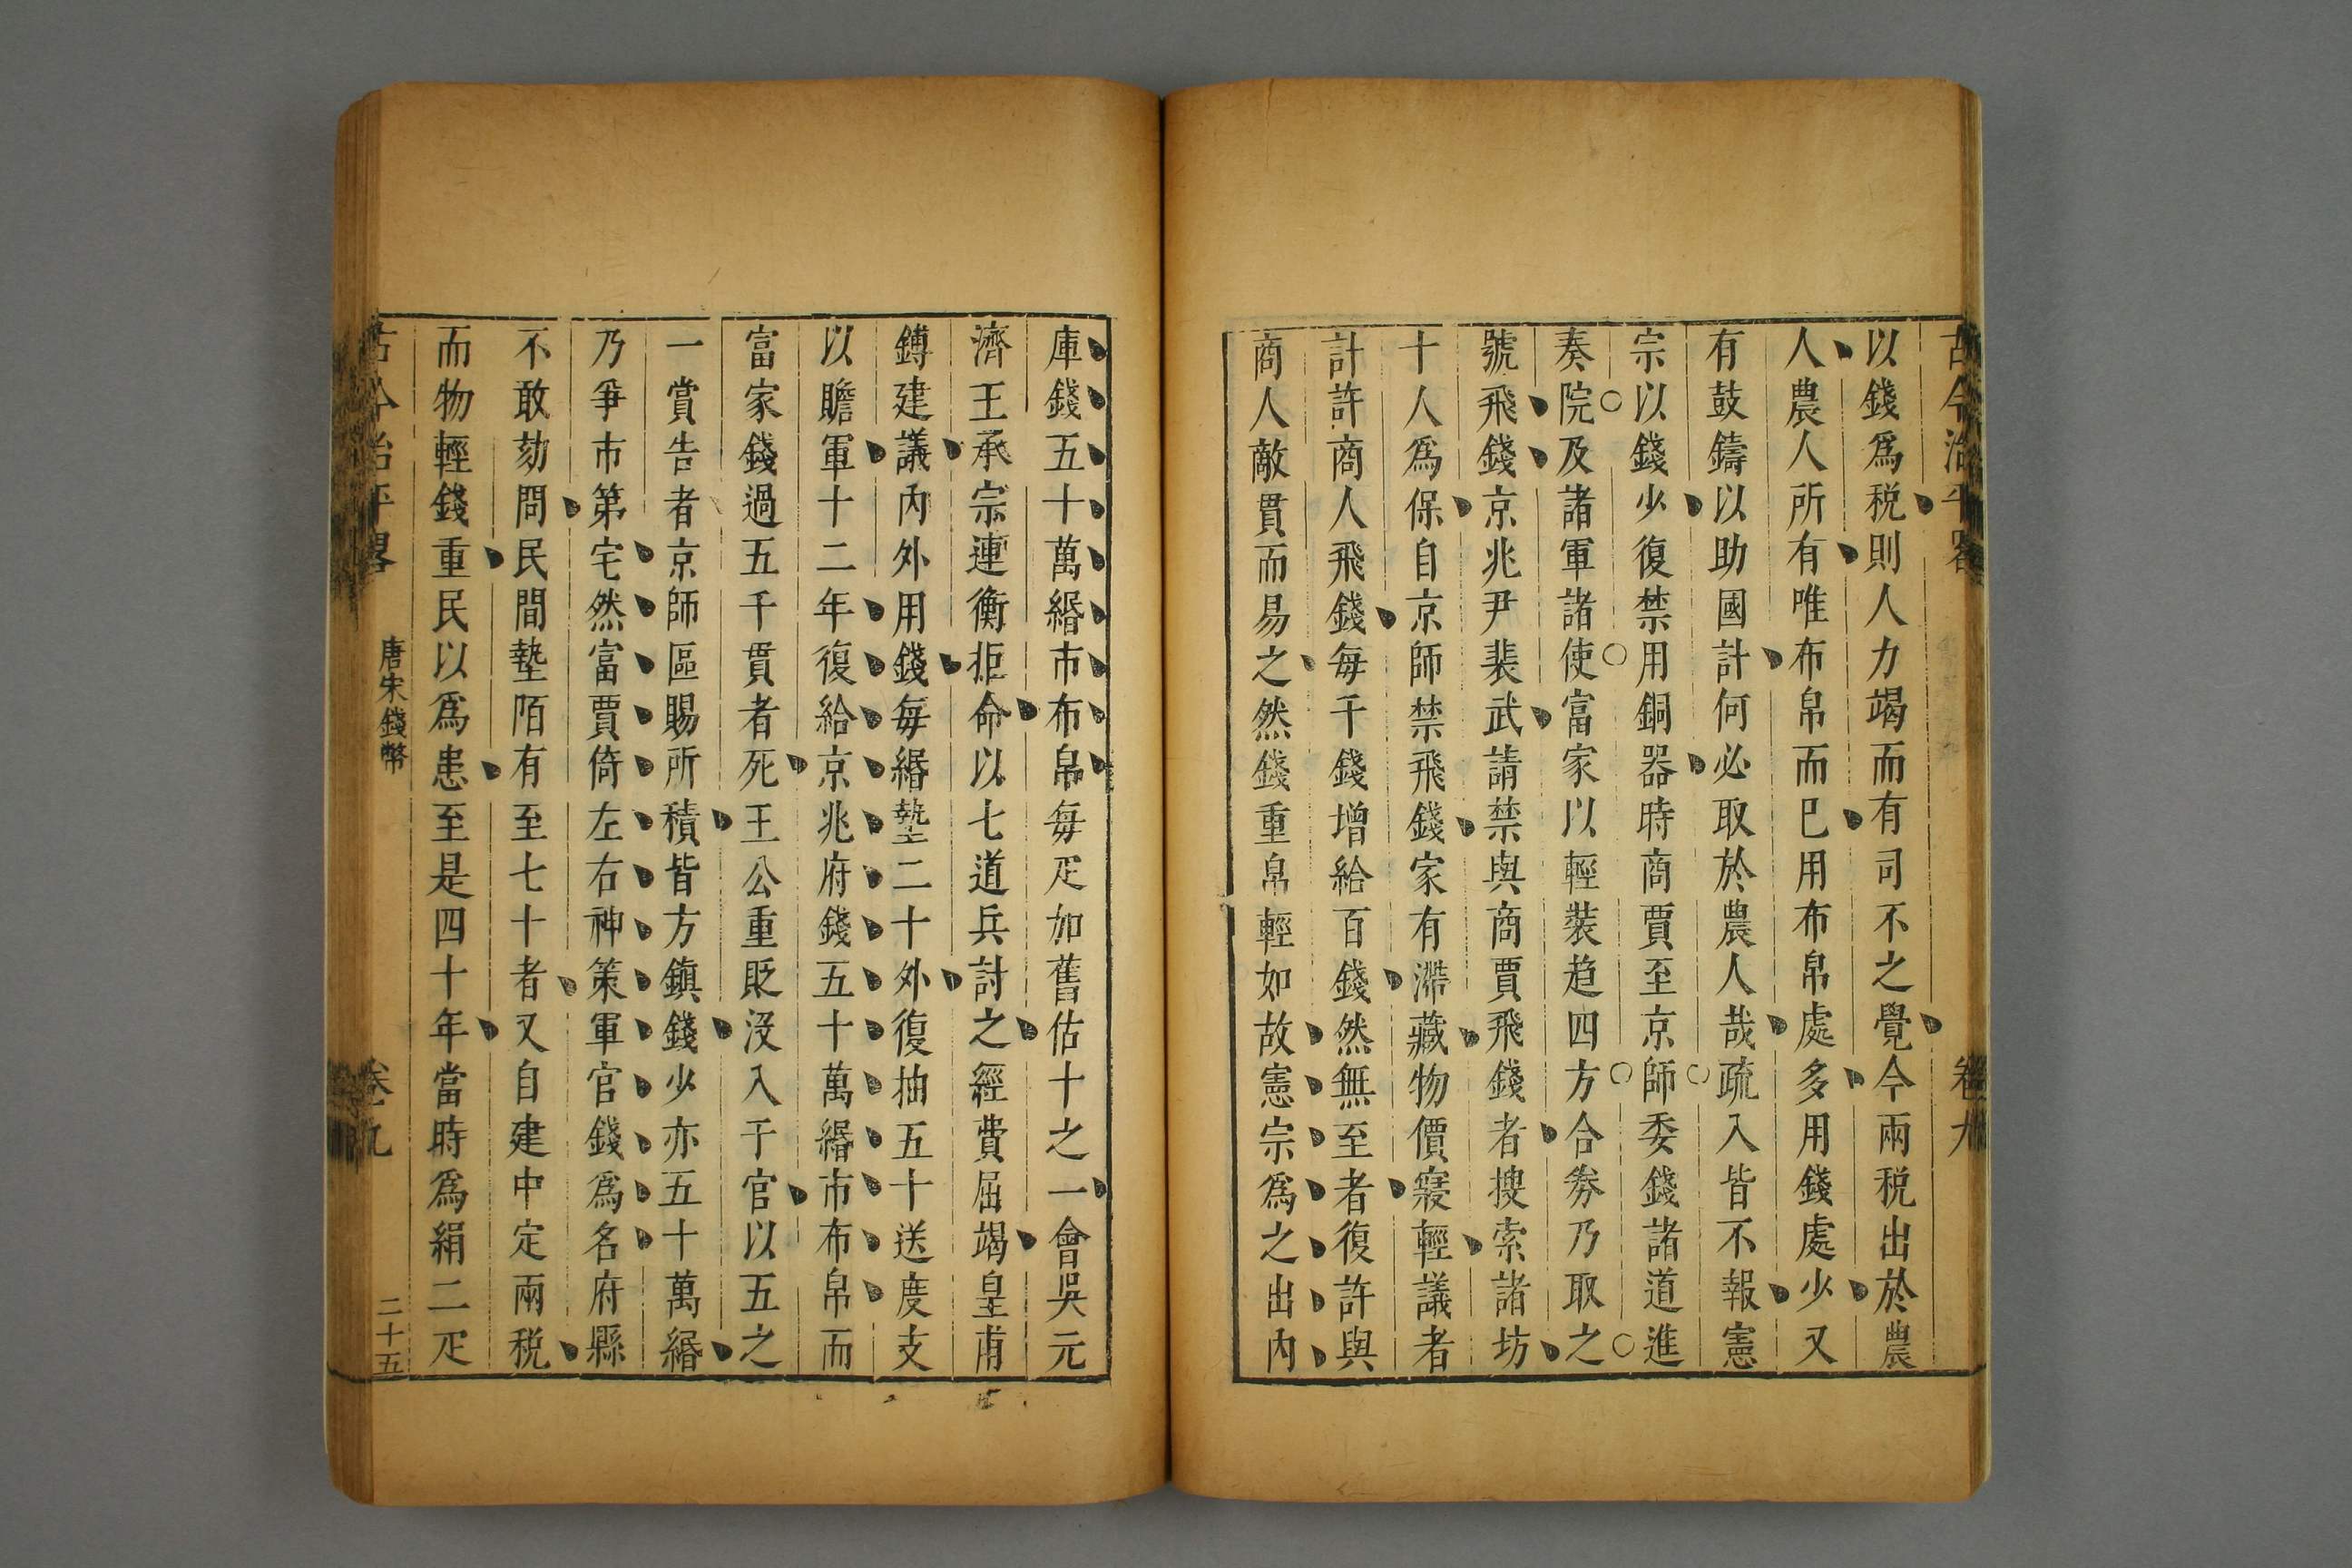 古今治平畧 卷九
以錢爲税則人力竭而有司不之覺今兩税出於農
人農人所有唯布帛而已用布帛處多用錢處少又
有鼓鑄以助國計何必取於農人哉疏入皆不報憲
宗以錢少復禁用銅器時商賈至京師委錢諸道進
奏院及諸軍諸使富家以輕裝趋四方合劵乃取之
號飛錢京兆尹裴武請禁與商賈飛錢者搜索諸坊
十人爲保自京師禁飛錢家有滯藏物價寖輕議者
計許商人飛錢每千錢增給百錢然無至者復許與
商人敵貫而易之然錢重帛輕如故憲宗爲之出内
庫錢五十萬緡市布帛每疋如舊估十之一會吳元
濟王承宗連衡拒命以七道兵討之經費屈竭皇甫
鎛建議内外用錢每緡墊二十外復抽五十送度支
以贍軍十二年復給京兆府錢五十萬緡市布帛而
富家錢過五千貫者死王公重貶沒入于官以五之
一賞告者京師區賜所積皆方鎮錢少亦五十萬緡
乃爭市第宅然富賈倚左右神策軍官錢爲名府縣
不敢劾問民間墊陌有至七十者又自建中定兩税
而物輕錢重民以爲患至是四十年當時爲絹二疋
古今治平畧 唐宋錢幣 卷九 二十五